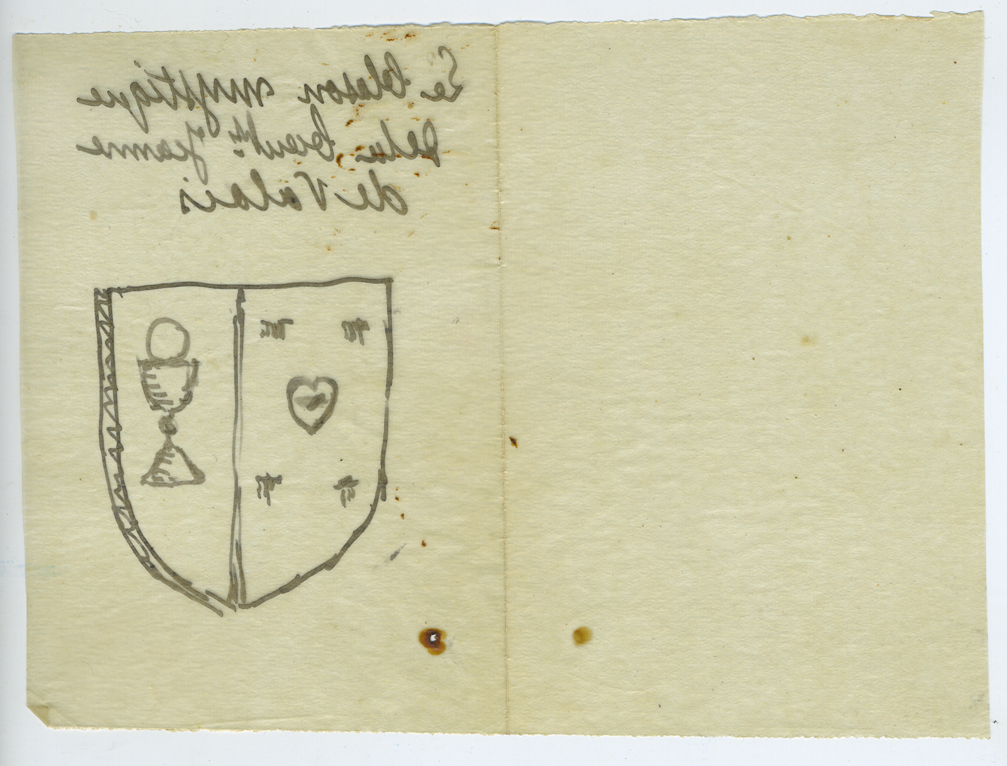 Le blason mystique
de la bienhse Jeanne
de Valois